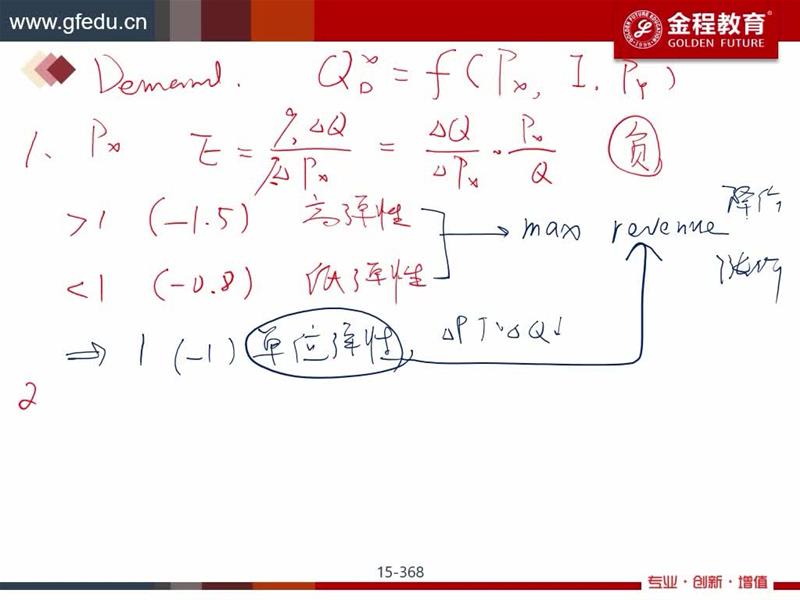 www.gfedu.cn
金程教育
GOLDEN FUTURE
Demand. Q_D^x = f(Px, I, Py)
1、Px E = %ΔQ / %ΔPx = ΔQ/ΔPx · Px/Q 负
>1 (-1.5) 高弹性
max revenue 降价
<1 (-0.8) 低弹性
⇒ 1 (-1) 单位弹性, ΔP↑ ΔQ↓
2
15-368
专业·创新·增值